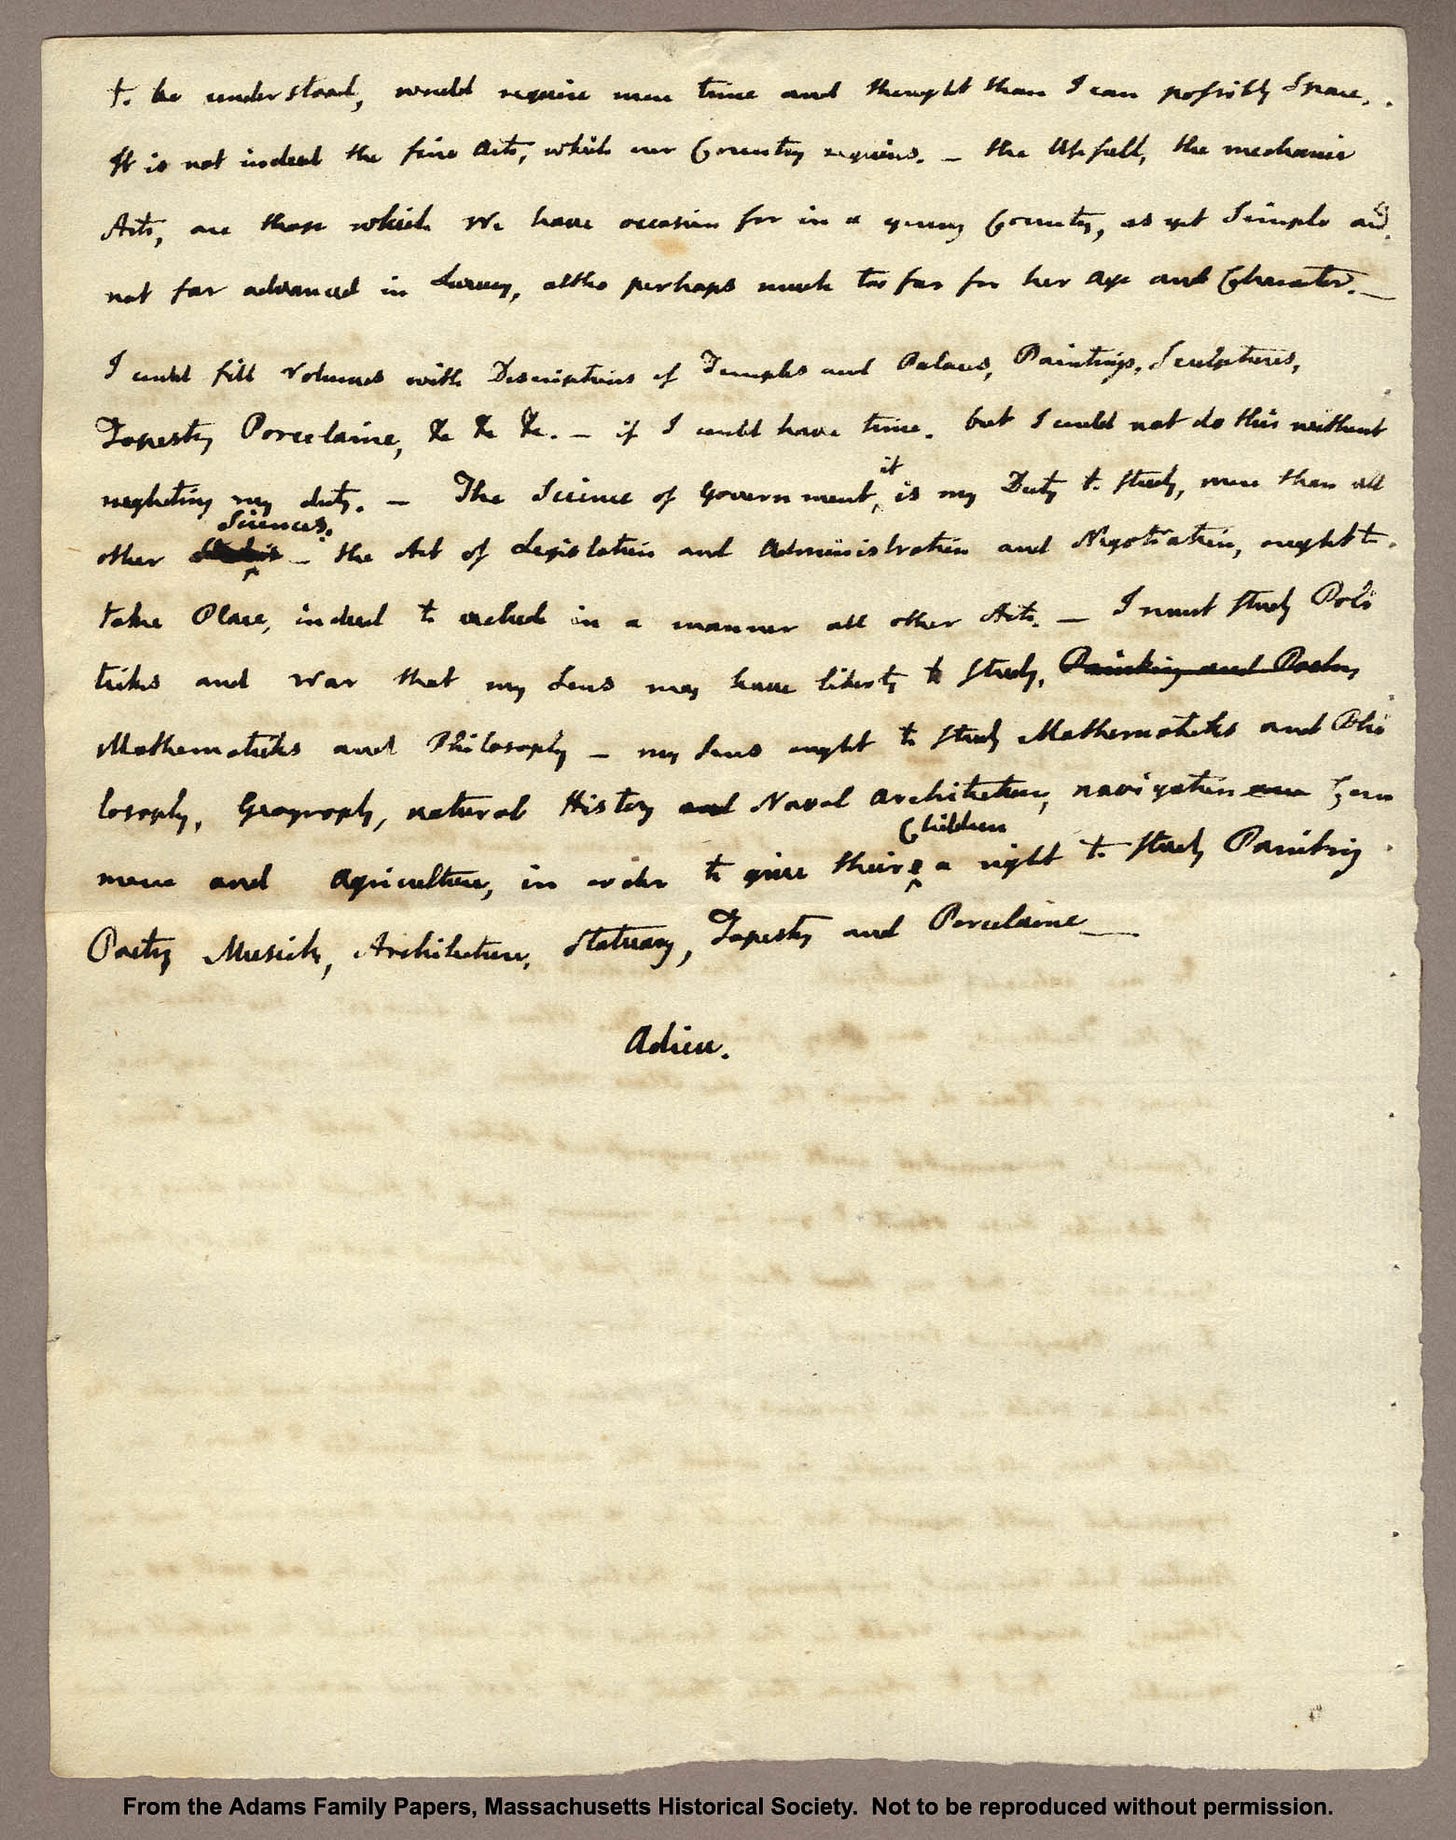 to be understood, would require more time and thought than I can possibly Spare.
It is not indeed the fine Arts, which our Country requires. — the Usefull, the mechanic
Arts, are those which We have occasion for in a young Country, as yet Simple and
not far advanced in Luxury, altho perhaps much too far for her Age and Character. —
I could fill Volumes with Descriptions of Temples and Palaces, Paintings, Sculptures,
Tapestry Porcelaine, &c &c &c. — if I could have time. but I could not do this without
neglecting my duty. — The Science of Government, it is my Duty to Study, more than all
other Sciences. — the Art of Legislation and Administration and Negotiation, ought to
take Place, indeed to exclude in a manner all other Arts. — I must study Poli
ticks and War that my Sons may have liberty to study, Painting and Poetry
Mathematicks and Philosophy — my Sons ought to study Mathematicks and Phi
losophy, Geography, natural History and Naval Architecture, navigation and Com
merce and Agriculture, in order to give their Children a right to study Painting
Poetry Musick, Architecture, Statuary, Tapestry and Porcelaine —
Adieu.
From the Adams Family Papers, Massachusetts Historical Society. Not to be reproduced without permission.